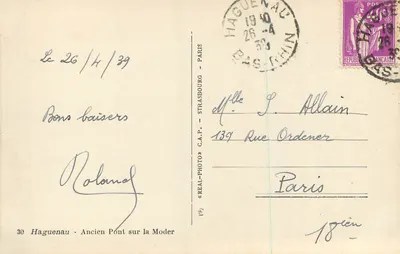 Le 26/4/39
Bons baisers
Roland
30 Haguenau - Ancien Pont sur la Moder
«REAL-PHOTO» C.A.P. - STRASBOURG - PARIS
HAGUENAU
28-4
39
BAS-RHIN
HAGUENAU
BAS-
Mlle S. Allain
139 Rue Ordener
Paris
18ièn